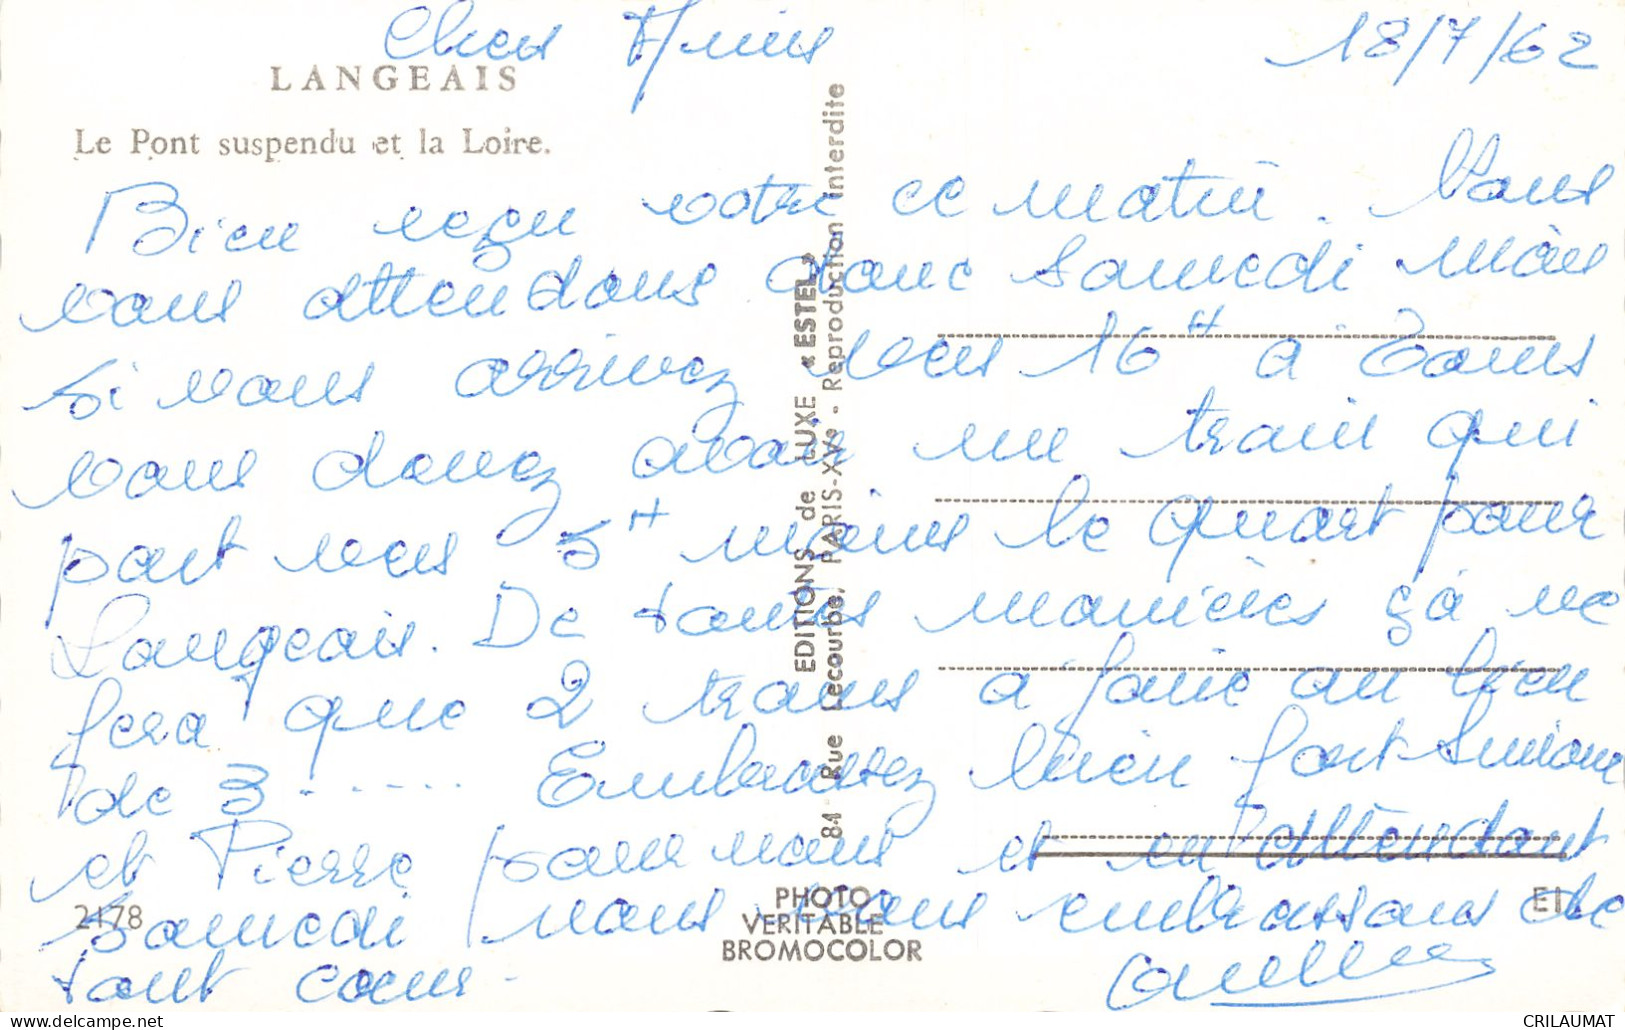 Chers Amis
18/7/62
LANGEAIS
Le Pont suspendu et la Loire.
Bien reçu votre ce matin. Nous
vous attendons donc samedi mais
si vous arrivez vers 16H à Tours
vous devez avoir un train qui
part vers 5H moins le quart pour
Langeais. De toutes manières ça ne
fera que 2 trans à faire au lieu
de 3 ...... Embrassez bien fort Simone
et Pierre pour nous et en attendant
samedi nous vous embrassons de
tout cœur.
EDITIONS de LUXE « ESTEL »
84 Rue Lecourbe, PARIS-XVe - Reproduction interdite
2178
PHOTO
VERITABLE
BROMOCOLOR
delcampe.net
CRILAUMAT